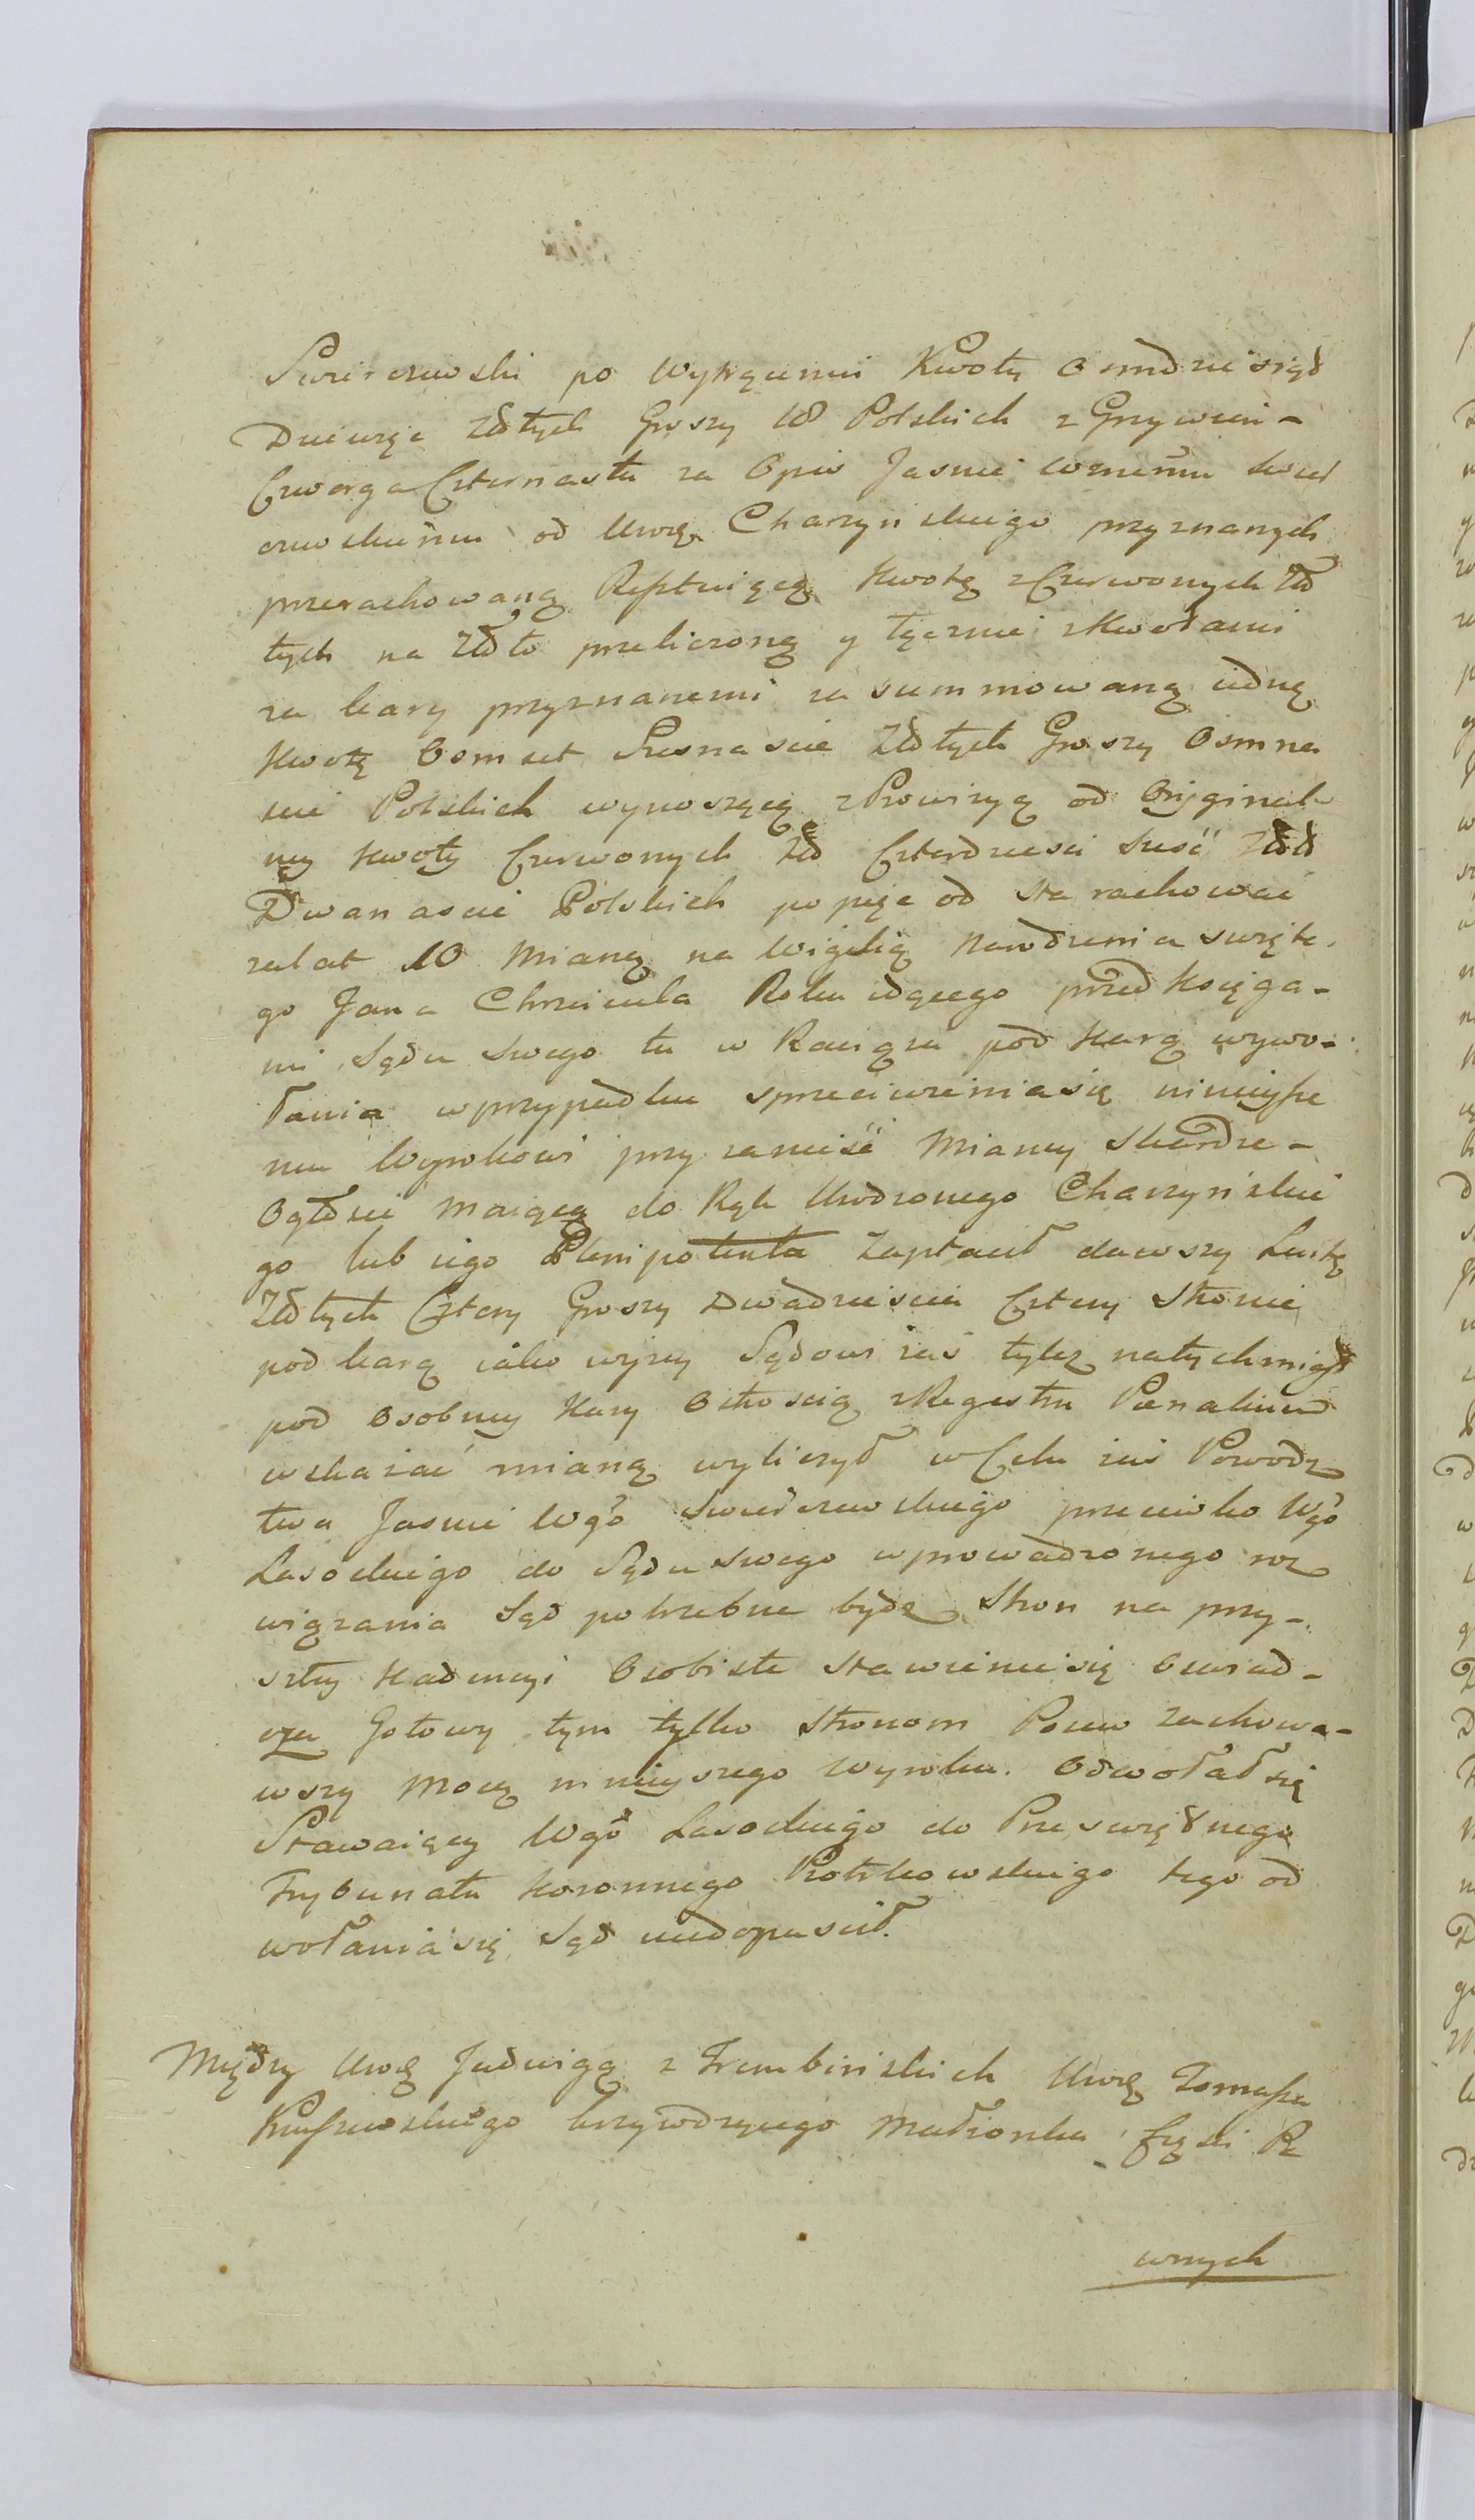 Swierczewski po Wytrąceniu Kwoty Osmdziesiąd
Dziewięc Złłtych Groszy 18 Polskich z Grzywien-
Czworga Czternastu za Opis Jasnie Wznemu Swier
czewskiemu od Uwrę. Charzyńskiego przyznanych
przerachowaną Resztuiącą Kwotę z Czerwonych Zło
tych na Złło przeliczoną y łącznie zkwotami
za kary przyznanemi za summowaną iedną
Kwotę Osmset Szesnascie Złłtych Groszy Osmna
scie Polskich wynoszącą z Prowizyą od Oryginal-
ney Kwoty Czerwonych Złł Czterdziesci Szesć Złłł
Dwanascie Polskich po pięc od sta rachowac
zalat 10 Mianą na Wigilią Narodzenia swięte-
go Jana Chrzciciela Roku idącego przed Księga-
mi Sądu Swego tu w Raciązu pod Karą wywo-
łania w przypadku sprzeciwieniasię ninieysze
mu Wyrokowi przy zanieść Mianey Skardze-
Ogłosic Maiącą do Rąk Urodzonego Charzyńskie
go lub iego Plenipotenta Zapłacił dawszy Luitę
Złłtych Cztery Groszy Dwadziescia Cztery Stronie
pod karą iako wyzey Sądowi zaś tyleż natychmiast
pod Osobney Kary Ostroscią z Regestru Pœnalium
wskazać mianą wyliczył w Celu zaś Powodz
twa Jasnie Wgo Swierczewskiego przeciwko Wgo
Lasockiego do Sądu Swego wprowadzonego roz
wiązania Sąd potrzebne bydz Stron na przy-
szłey Kadencyi Osobiste stawieniesię Oswiad-
cza Gotowy tym tylko Stronom Pozew zachowa-
wszy Mocą ninieyszego Wyroku. Odwołał się
Stawaiący Wgo Lasockiego do Przeświętnego
Trybunału Koronnego Piotrkowskiego tego od
wołaniasię Sąd niedopuscił.
Między Uwę Jadwigą z Trembińskich Uwę Tomasza
Kruszewskiego krzywdzącego Małżonka Części
wnych